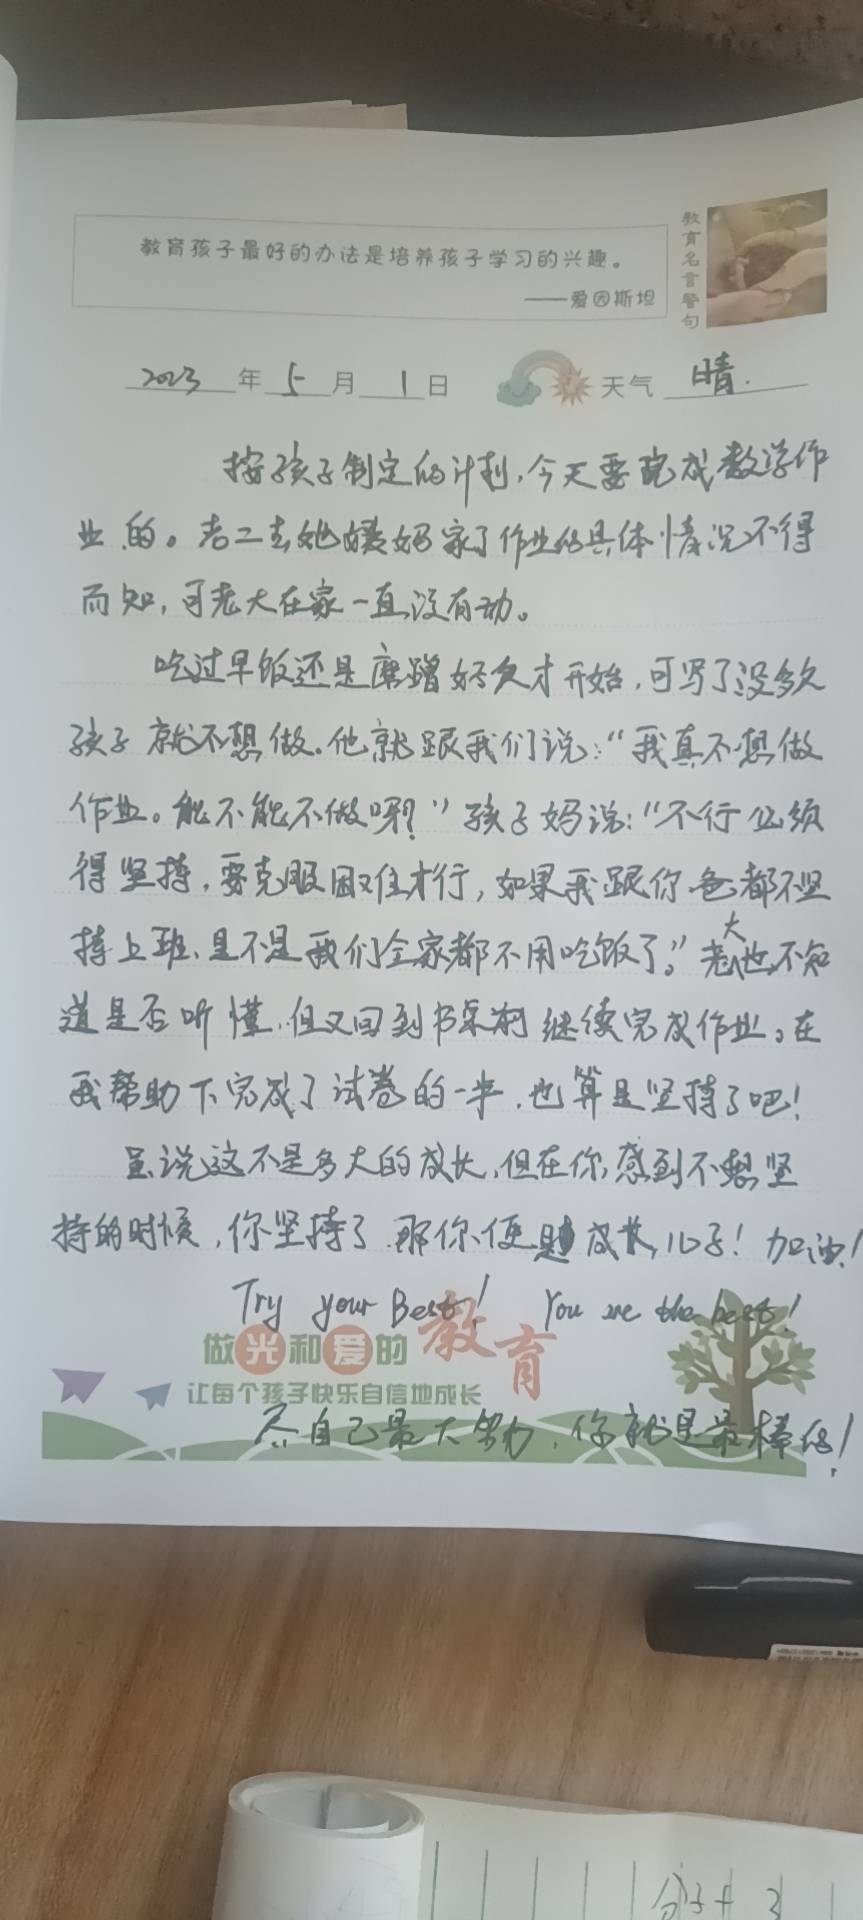 教育孩子最好的办法是培养孩子学习的兴趣。
——爱因斯坦
教育名言警句
2023年5月1日 天气 晴.
按孩子制定的计划,今天要完成数学作
业的。老二去她姨妈家了作业的具体情况不得
而知,可老大在家一直没有动。
吃过早饭还是磨蹭好久才开始,可写了没多久
孩子就不想做。他就跟我们说:“我真不想做
作业。能不能不做啊?”孩子妈说:“不行必须
得坚持,要克服困难才行,如果我跟你爸都不坚
持上班、是不是我们全家都不用吃饭了。”老大也不知
道是否听懂,但又回到书桌前继续完成作业。在
我帮助下完成了试卷的一半,也算是坚持了吧!
虽说这不是多大的成长,但在你感到不想坚
持的时候,你坚持了.那你便是成长,儿子!加油!
Try your Best! You are the best!
做光和爱的教育
让每个孩子快乐自信地成长
尽自己最大努力,你就是最棒的!
分子+3